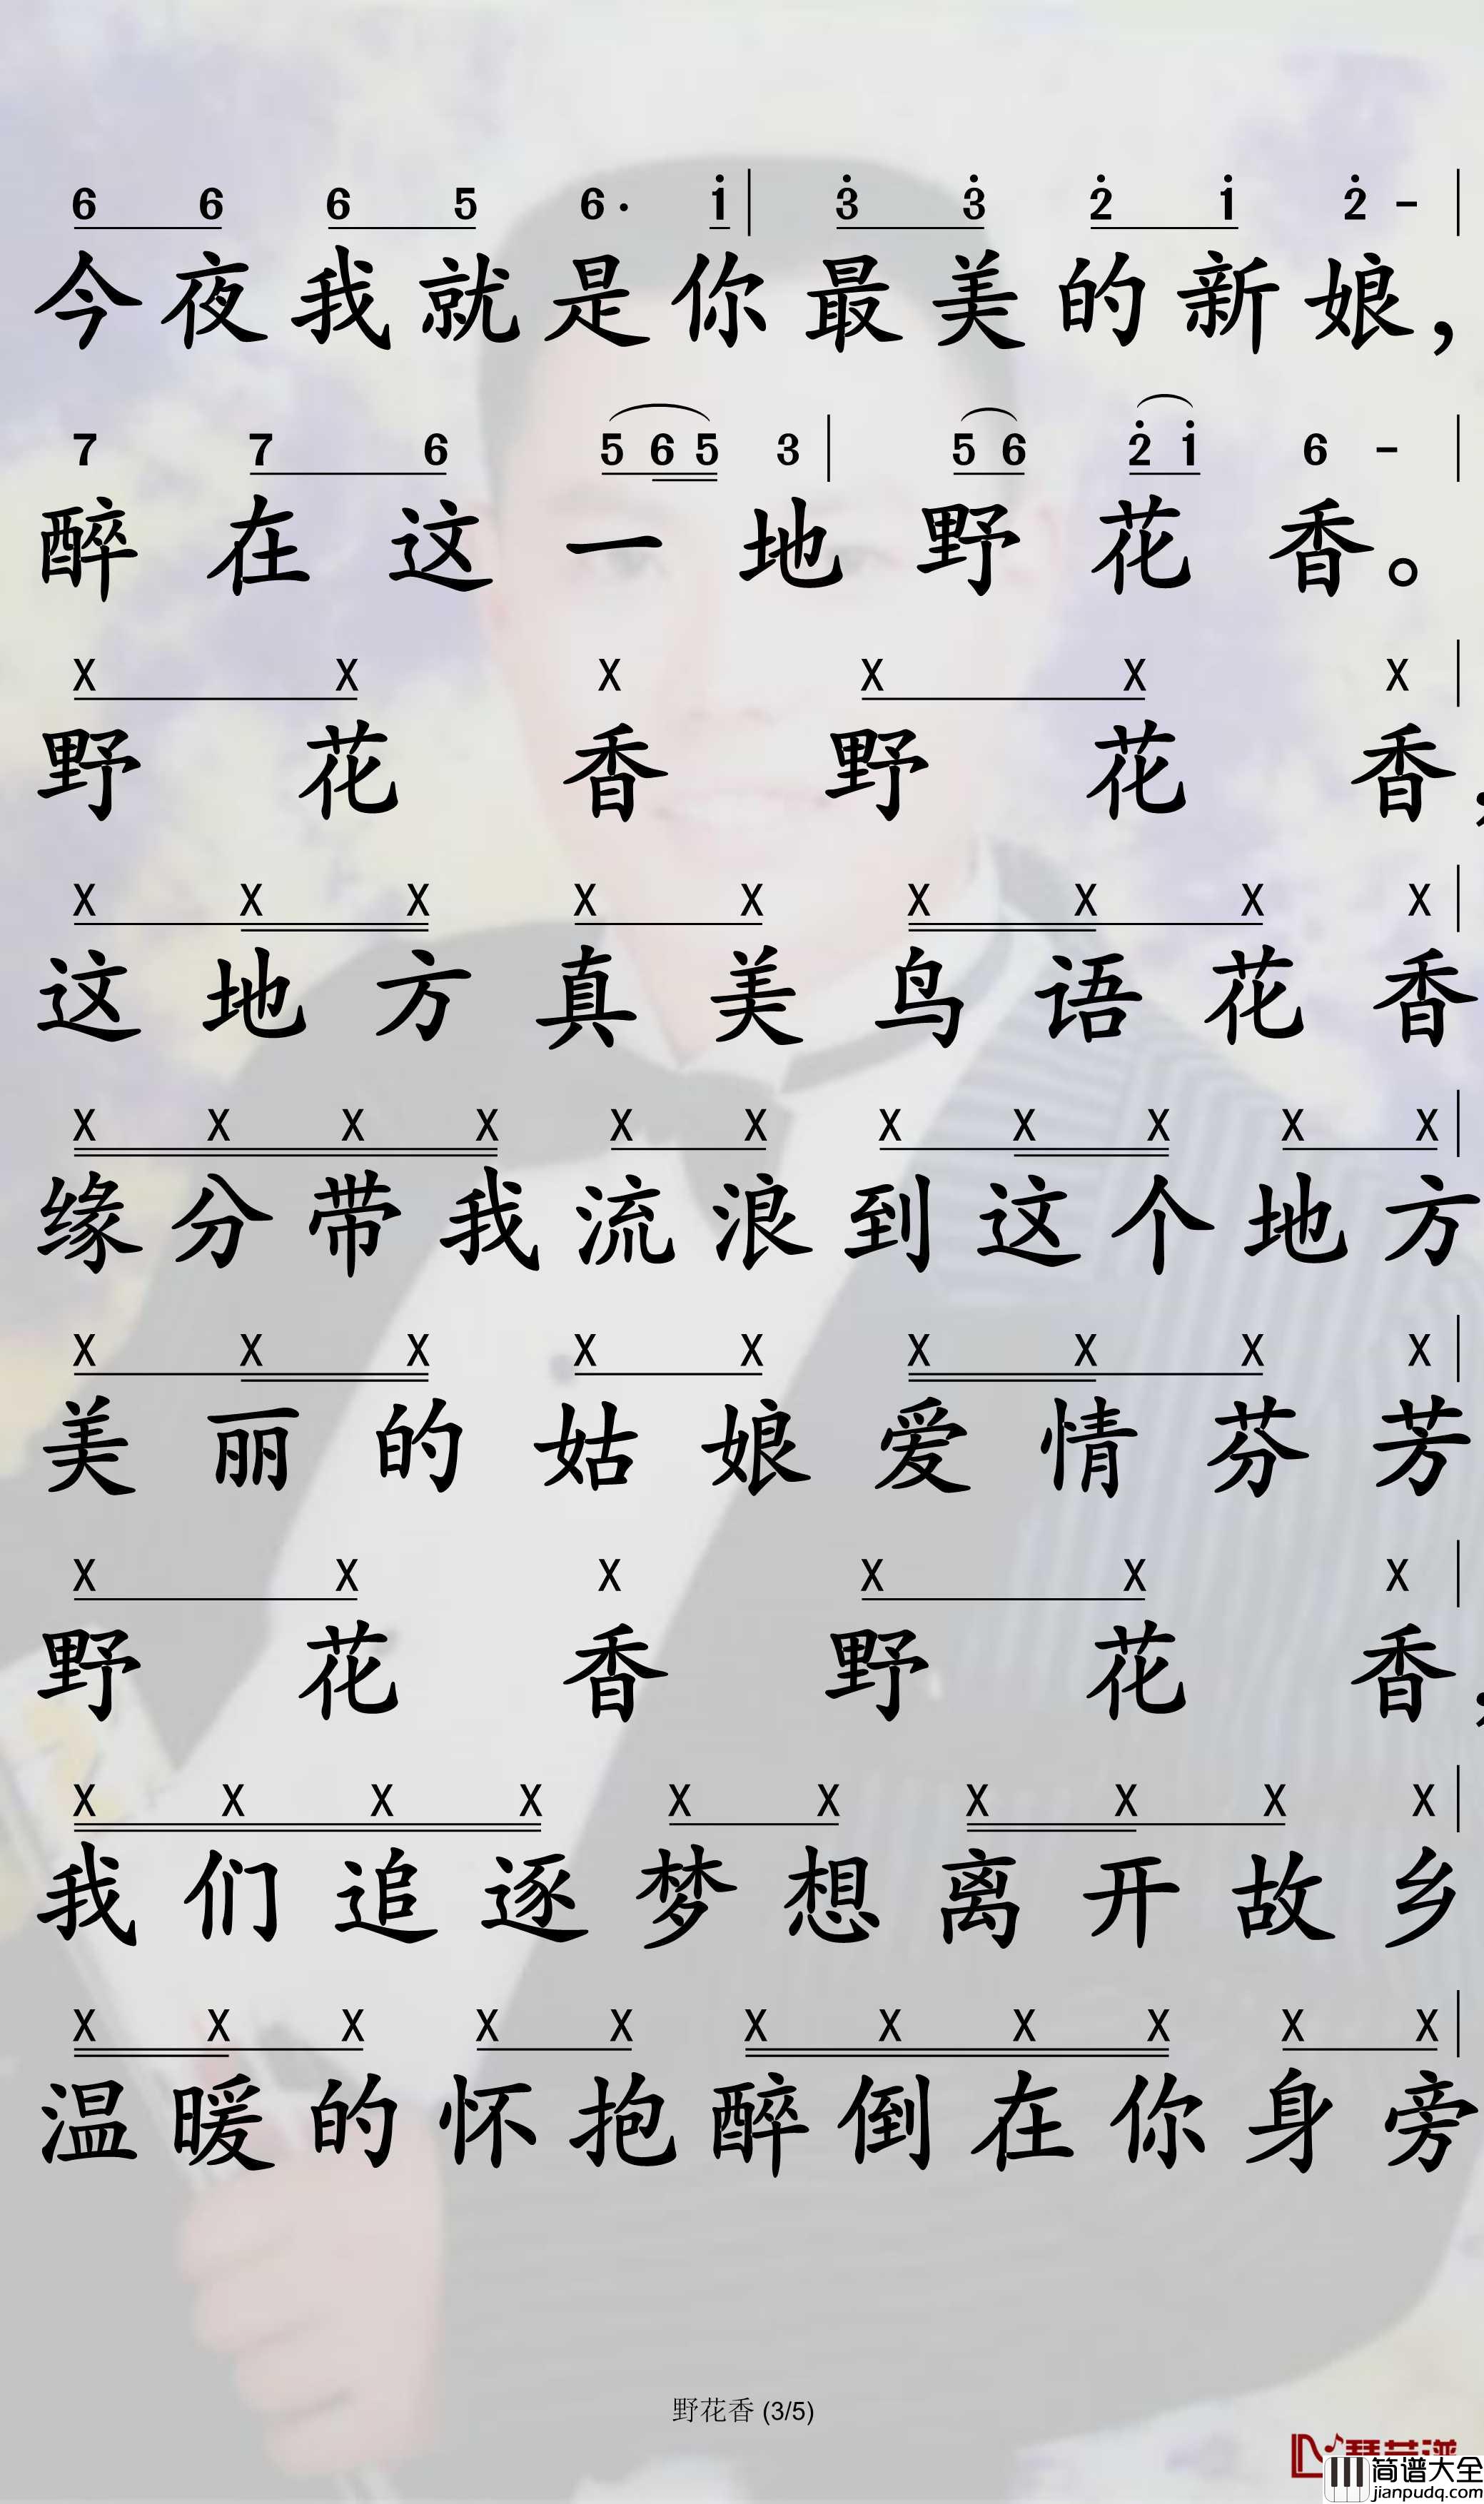 6 6 6 5 6· i | 3̇ 3̇ 2̇ i 2̇ - |
今夜我就是你最美的新娘，
7 7 6 5 6 5 3 | 5 6 2̇ i 6 - |
醉在这一地野花香。
X X X X X X |
野花香野花香，
X X X X X X X X X |
这地方真美鸟语花香
X X X X X X X X X X X |
缘分带我流浪到这个地方
X X X X X X X X X |
美丽的姑娘爱情芬芳
X X X X X X |
野花香野花香，
X X X X X X X X X X |
我们追逐梦想离开故乡
X X X X X X X X X X X |
温暖的怀抱醉倒在你身旁
野花香 (3/5)
简谱大全
jianpudq.com